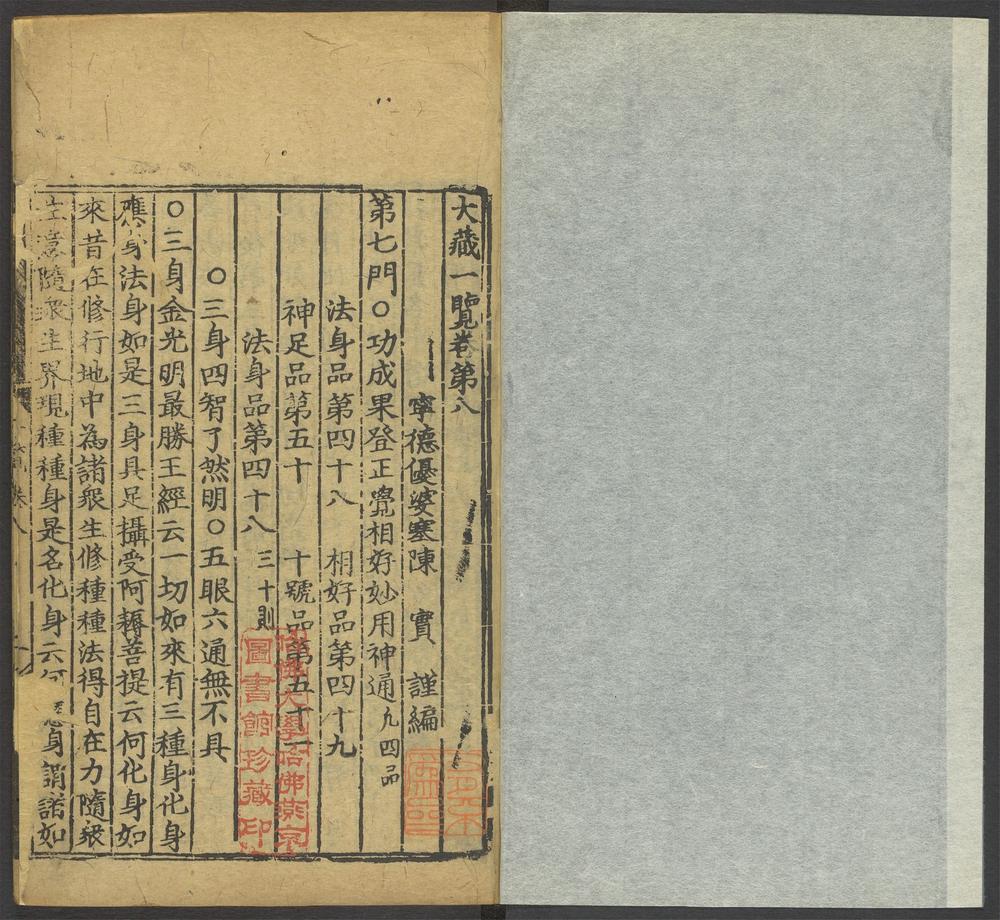 大藏一覽卷第八
寧德優婆塞陳 實 謹編
第七門○功成果登正覺相好妙用神通凢四品
法身品第四十八 相好品第四十九
神足品第五十 十號品第五十一
法身品第四十八 三十則
○三身四智了然明○五眼六通無不具
○三身金光明最勝王經云一切如來有三種身化身
應身法身如是三身具足攝受阿耨菩提云何化身如
來昔在修行地中為諸衆生修種種法得自在力隨衆
生意隨衆生界現種種身是名化身云何應身謂諸如
哈佛大學哈佛燕京
圖書館珍藏印